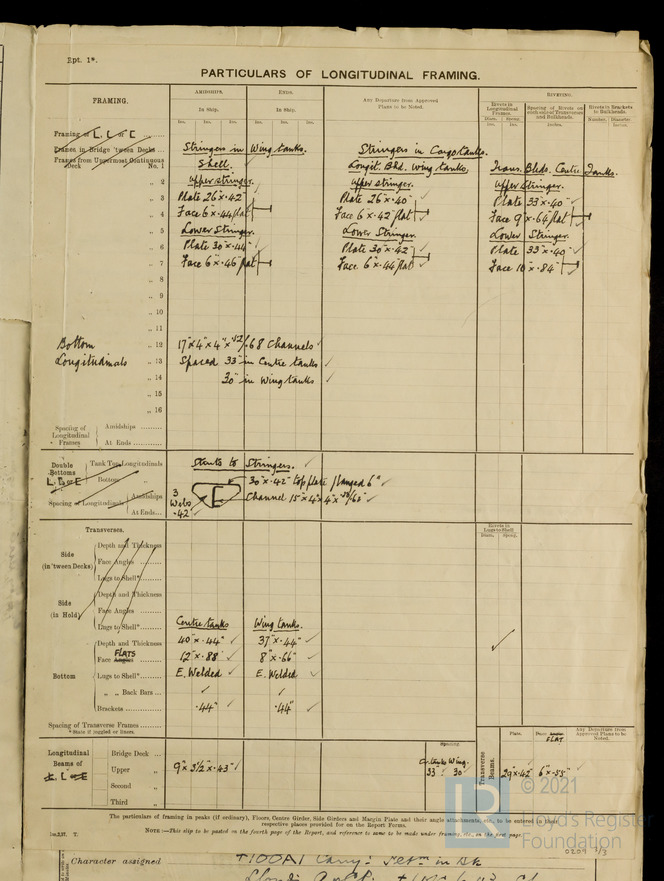 Rpt. 1*.
PARTICULARS OF LONGITUDINAL FRAMING.
FRAMING.
AMIDSHIPS.
ENDS.
Any Departure from Approved Plans to be Noted.
RIVETING.
In Ship.
In Ship.
Rivets in Longitudinal Frames.
Spacing of Rivets on each side of Transverses and Bulkheads.
Rivets in Brackets to Bulkheads.
Ins. Ins. Ins. Ins. Ins. Ins.
Diam. Ins. Spcng. Ins.
Inches.
Number. Diameter. Inches.
Framing of L, L, or E
Frames in Bridge 'tween Decks
Stringers in Wing tanks.
Stringers in Cargo tanks.
Frames from Uppermost Continuous Deck No. 1
Shell.
Longit. Bhd. wing tanks.
Trans. Blds. Centre Tanks.
„ 2
upper stringer.
upper stringer.
upper Stringer.
„ 3
Plate 26"x.42"
Plate 26"x.40"
Plate 33"x.40"
„ 4
Face 6"x.44 flat
Face 6"x.42 flat
Face 9"x.64 flat
„ 5
Lower Stringer.
Lower Stringer.
Lower Stringer.
„ 6
Plate 30"x.44"
Plate 30"x.42"
Plate 33"x.40"
„ 7
Face 6"x.46 flat
Face 6"x.44 flat
Face 10"x.84"
„ 8
„ 9
„ 10
„ 11
Bottom
„ 12
17"x4"x4"x.52/.68 Channels
Longitudinals
„ 13
Spaced 33" in Centre tanks
„ 14
30" in Wing tanks
„ 15
„ 16
Spacing of Longitudinal Frames
Amidships
At Ends
Double Bottoms L, L, or E
Tank Top Longitudinals
Struts to Stringers.
Bottom „
30"x.42" top plate flanged 6"
Spacing of Longitudinals
Amidships
At Ends
3 Webs .42
Channel 15"x4"x4"
Transverses.
Rivets in Lugs to Shell
Diam. Spcng.
Side (in 'tween Decks)
Depth and Thickness
Face Angles
Lugs to Shell*
Side (in Hold)
Depth and Thickness
Face Angles
Lugs to Shell*
Centre tanks
Wing tanks.
Bottom
Depth and Thickness
40"x.44"
37"x.44"
Face Angles FLATS
12"x.88"
8"x.66"
Lugs to Shell*
E. Welded
E. Welded
„ „ Back Bars
Brackets
.44"
.44"
Spacing of Transverse Frames
*State if joggled or liners.
Longitudinal Beams of L, L, or E
Bridge Deck
Upper „
Second „
Third „
9"x3½"x.43"
Spacing
Cr. tanks Wing.
33" : 30"
Transverse Beams.
Plate.
Face FLAT
Any Departure from Approved Plans to be Noted.
29"x.42"
6"x.55"
The particulars of framing in peaks (if ordinary), Floors, Centre Girder, Side Girders and Margin Plate and their angle attachments, etc., to be entered in their respective places provided for on the Report Forms.
NOTE:—This slip to be pasted on the fourth page of the Report, and reference to same to be made under framing, etc., on the first page.
Character assigned
+100A1
© 2021
Lloyd's Register
Foundation
0209 3/3